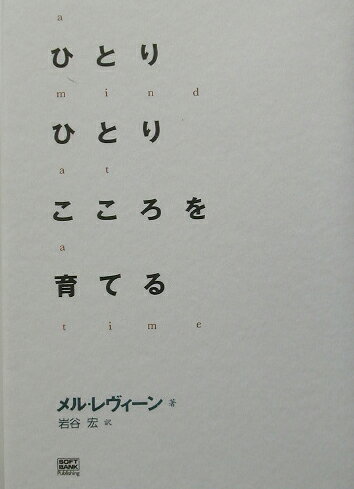 a
ひとり
mind
ひとり
at
こころを
a
育てる
time
メル・レヴィーン 著
岩谷 宏 訳
SOFT
BANK
Publishing